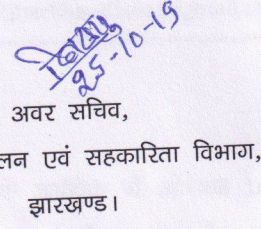 25-10-19
अवर सचिव,
लन एवं सहकारिता विभाग,
झारखण्ड।